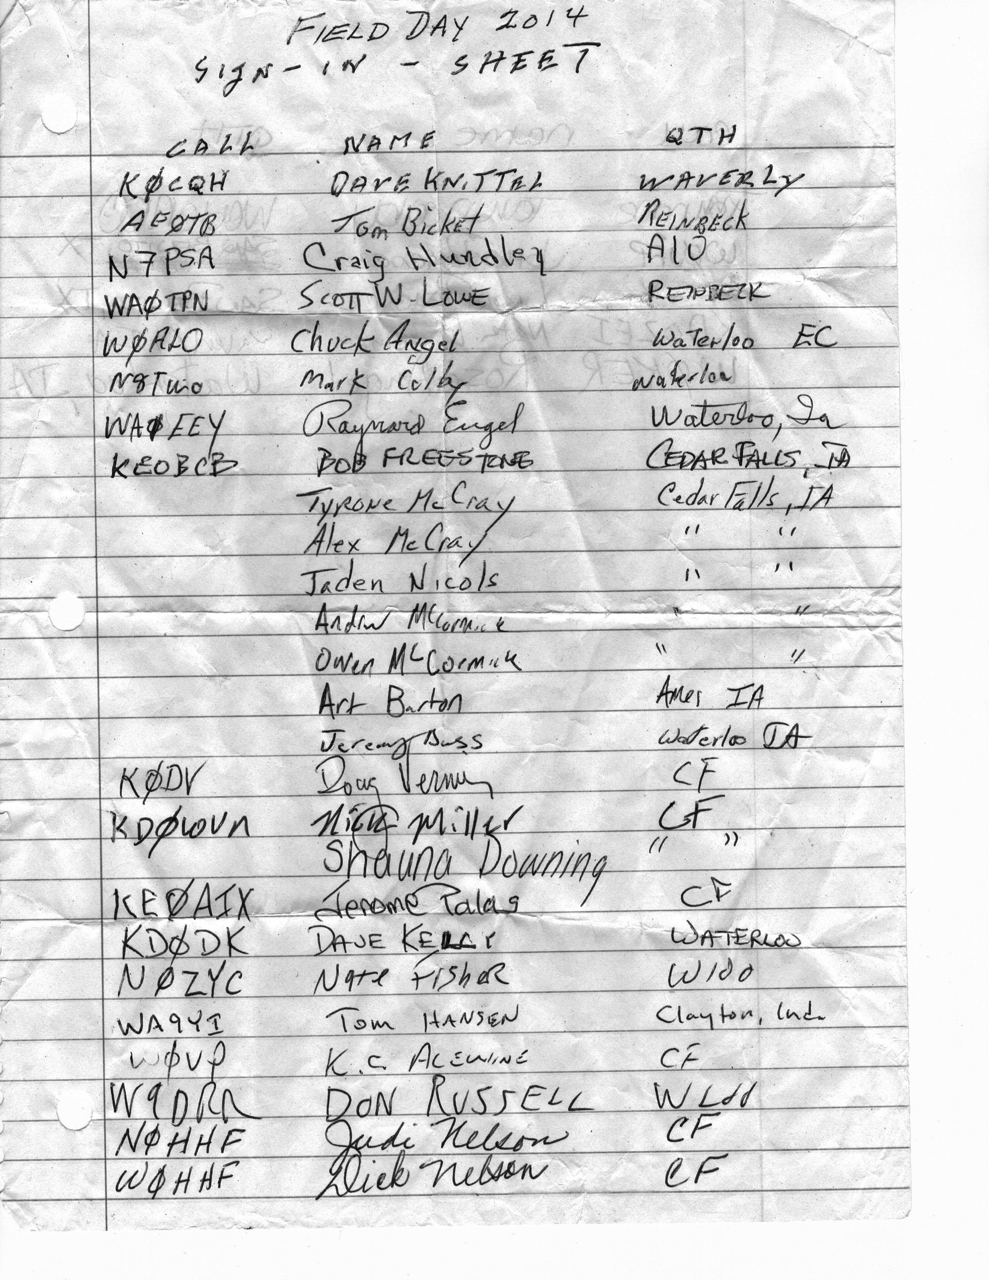 FIELD DAY 2014
SIGN-IN - SHEET
CALL NAME QTH
KØCQH DAVE KNITTEL WAVERLY
AEØTB Tom Bicket REINBECK
N7PSA Craig Hundley
WAØTPN SCOTT W. LOWE REINBECK
WØALO Chuck Angel Waterloo EC
N8Two Mark Colby waterloo
WAØEEY Raynard Engel Waterloo, Ia
KE0BCB BOB FREESTONE CEDAR FALLS, IA
TYRONE McCray Cedar Falls, IA
Alex McCray " "
Jaden Nicols " "
Andrew McCormick " "
Owen McCormick " "
Art Barton Ames IA
Jeremy Buss Waterloo IA
KØDV Doug Vernier CF
KDØWVN Nick Miller CF
Shauna Downing " "
KEØAIX Jerome Palas CF
KDØDK DAVE KELLY WATERLOO
NØZYC Nate FISHER Wloo
WA9YI Tom HANSEN Clayton, Ind.
WØVP K.C. ALEWINE CF
W9DRR DON RUSSELL WLOO
NØHHF Judi Nelson CF
WØHHF Dick Nelson CF